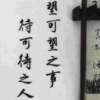 望可望之事
待可待之人